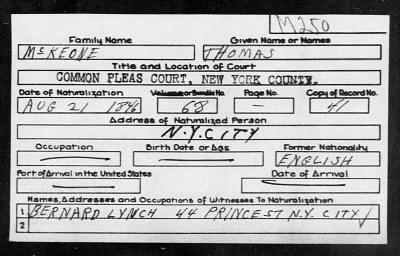 M250
Family Name Given Name or Names
McKEONE THOMAS
Title and Location of Court
COMMON PLEAS COURT, NEW YORK COUNTY.
Date of Naturalization Volume or Bundle No. Page No. Copy of Record No.
AUG 21 1846 68 — 41
Address of Naturalized Person
N.Y. CITY
Occupation Birth Date or Age Former Nationality
— — ENGLISH
Port of Arrival in the United States Date of Arrival
— —
Names, Addresses and Occupations of Witnesses To Naturalization
1 BERNARD LYNCH 44 PRINCE ST N.Y. CITY ✓
2